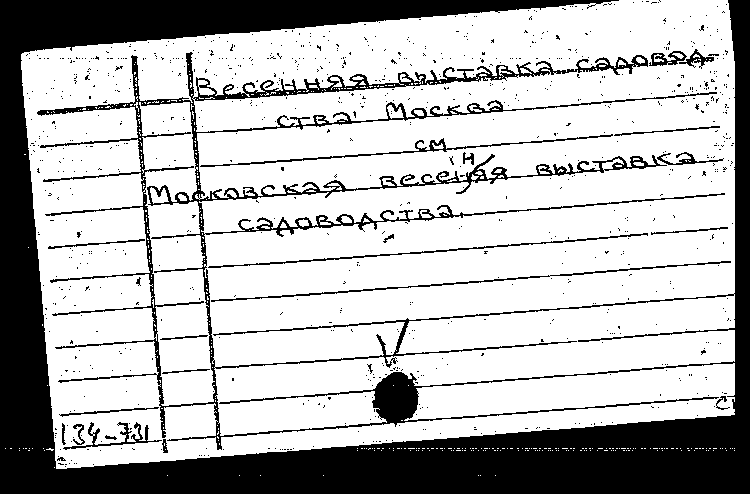 Весенняя выставка садовод-
ства. Москва
см
Московская весенняя выставка
садоводства.
134-731